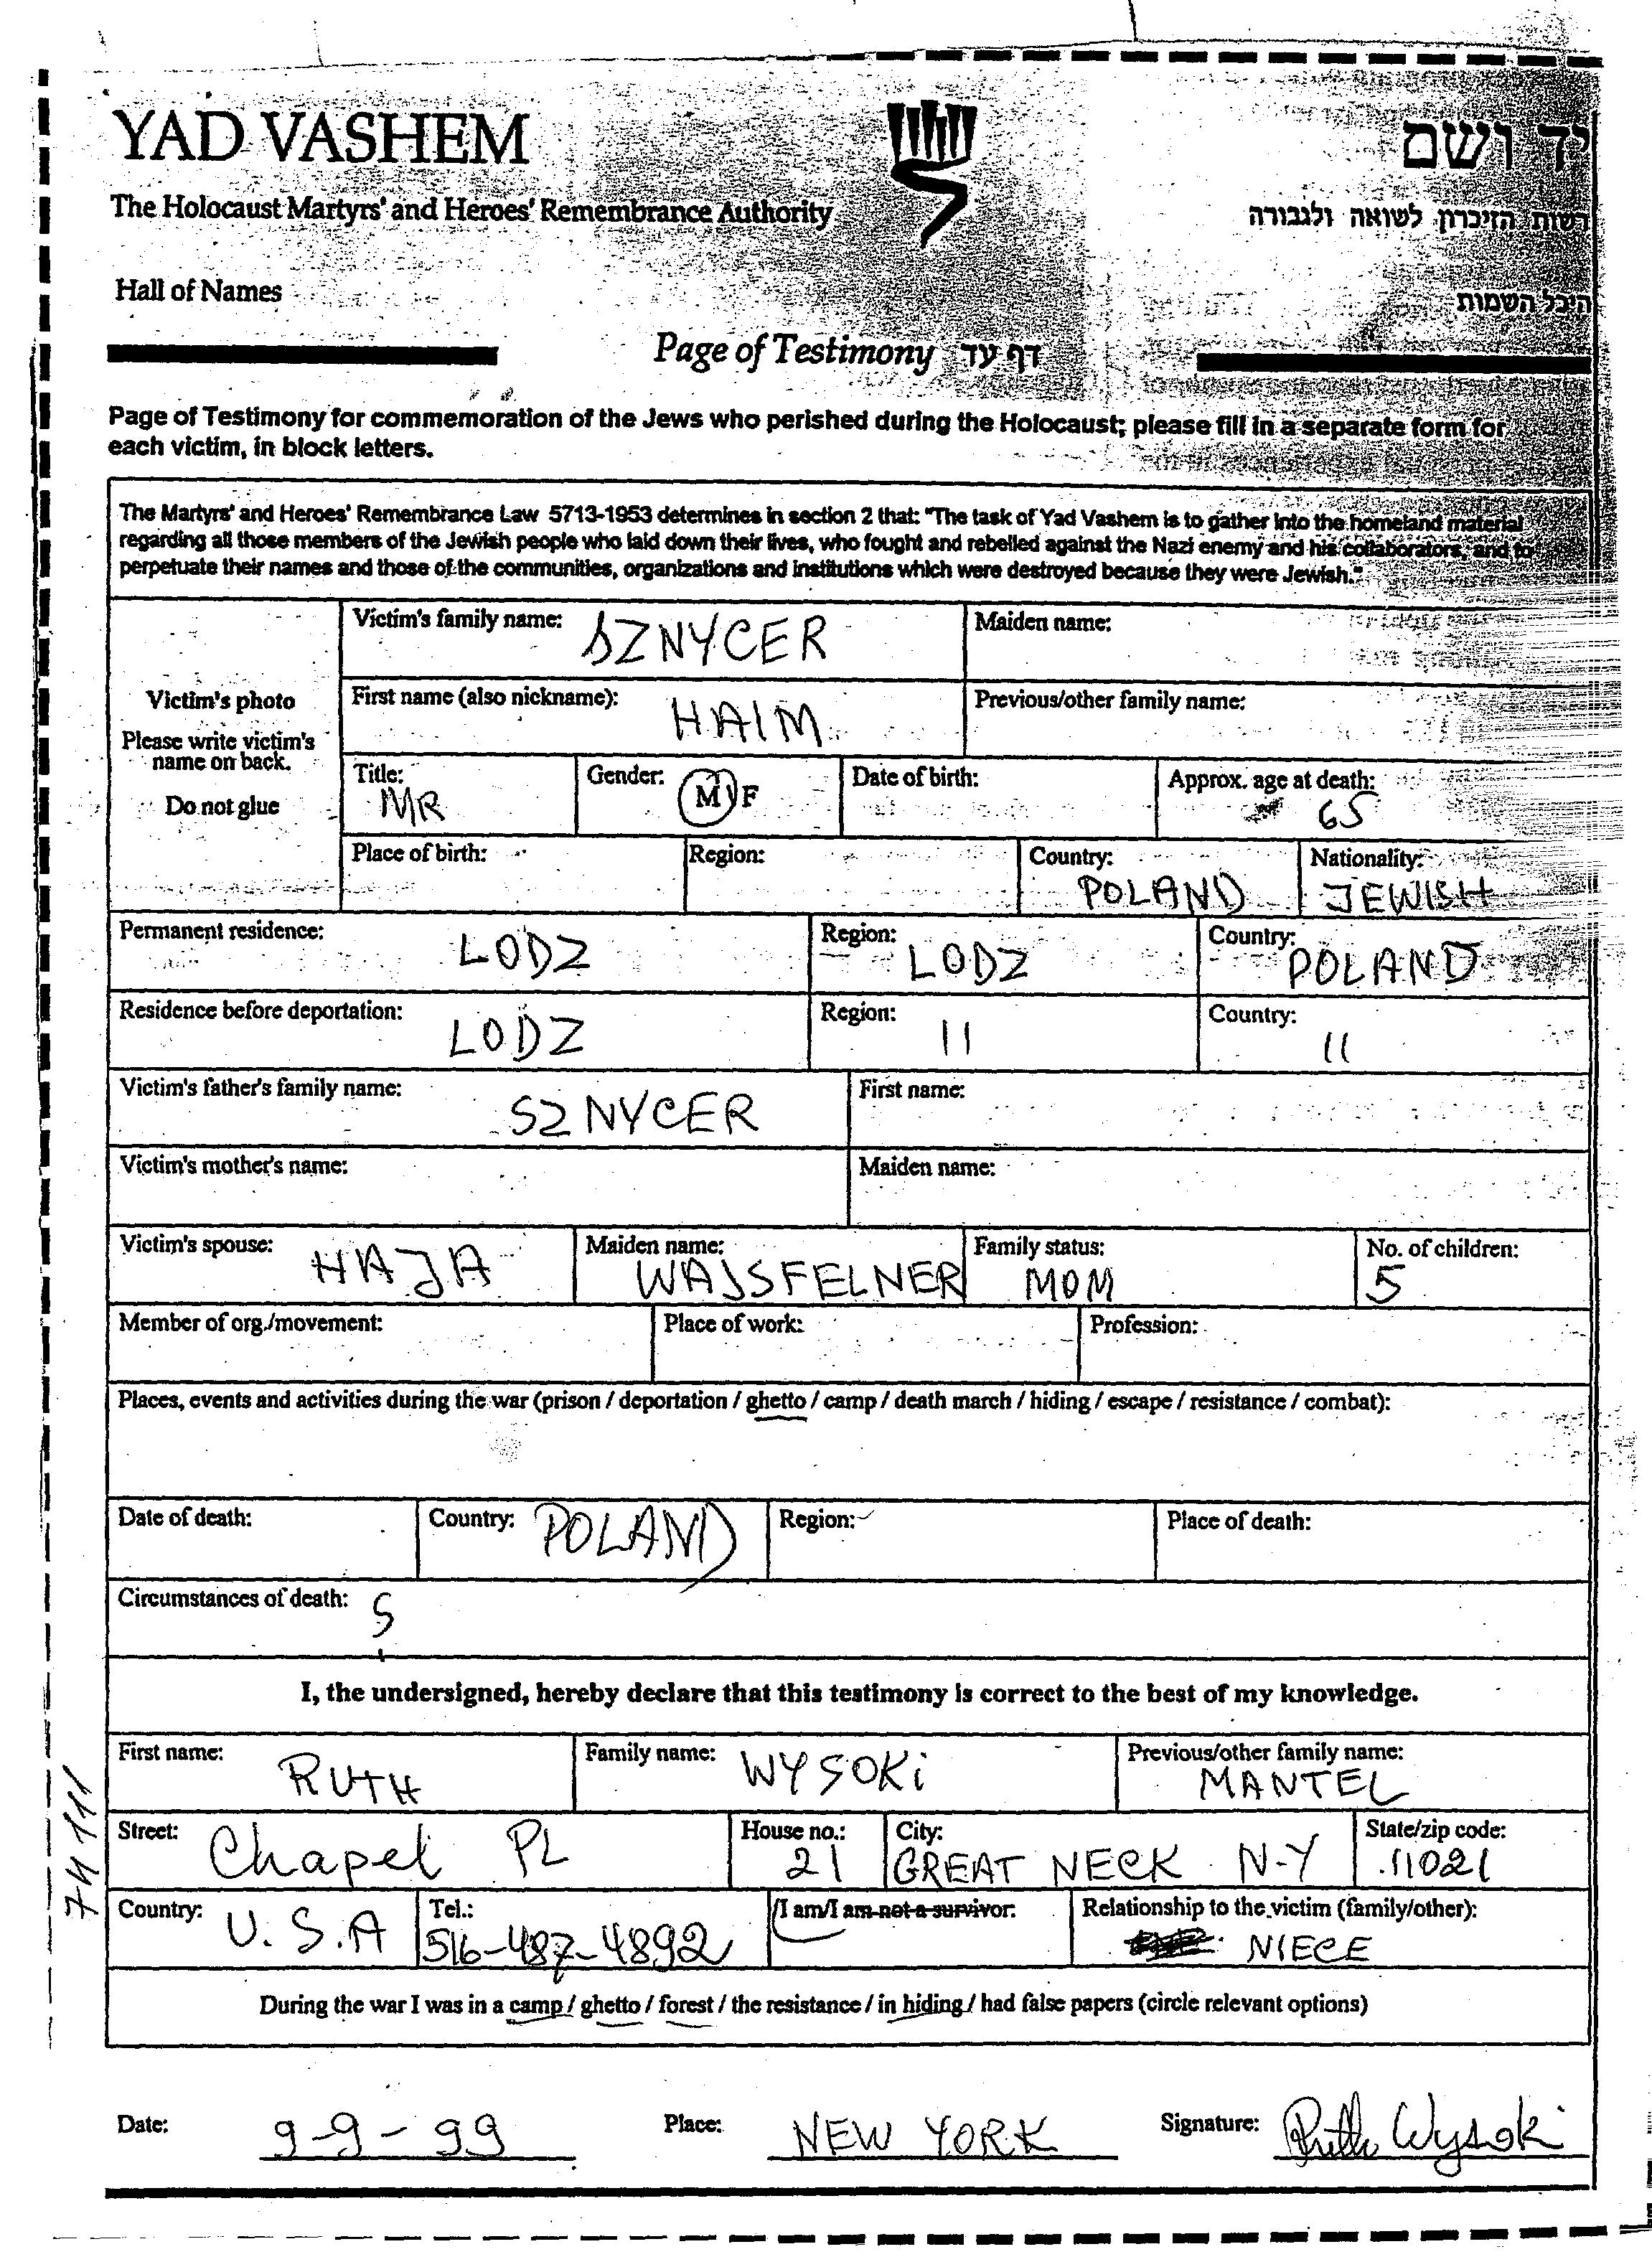 YAD VASHEM
יד ושם
The Holocaust Martyrs' and Heroes' Remembrance Authority
רשות הזיכרון לשואה ולגבורה
Hall of Names
היכל השמות
Page of Testimony דף עד
Page of Testimony for commemoration of the Jews who perished during the Holocaust; please fill in a separate form for
each victim, in block letters.
The Martyrs' and Heroes' Remembrance Law 5713-1953 determines in section 2 that: "The task of Yad Vashem is to gather into the homeland material
regarding all those members of the Jewish people who laid down their lives, who fought and rebelled against the Nazi enemy and his collaborators, and to
perpetuate their names and those of the communities, organizations and institutions which were destroyed because they were Jewish."
Victim's photo
Please write victim's
name on back.
Do not glue
Victim's family name: SZNYCER Maiden name:
First name (also nickname): HAIM Previous/other family name:
Title: MR Gender: M / F Date of birth: Approx. age at death: 65
Place of birth: Region: Country: POLAND Nationality: JEWISH
Permanent residence: LODZ Region: LODZ Country: POLAND
Residence before deportation: LODZ Region: 11 Country: 11
Victim's father's family name: SZNYCER First name:
Victim's mother's name: Maiden name:
Victim's spouse: HAJA Maiden name: WAJSFELNER Family status: MOM No. of children: 5
Member of org./movement: Place of work: Profession:
Places, events and activities during the war (prison / deportation / ghetto / camp / death march / hiding / escape / resistance / combat):
Date of death: Country: POLAND Region: Place of death:
Circumstances of death: S
I, the undersigned, hereby declare that this testimony is correct to the best of my knowledge.
First name: RUTH Family name: WYSOKi Previous/other family name: MANTEL
Street: Chapel PL House no.: 21 City: GREAT NECK N-Y State/zip code: 11021
Country: U.S.A Tel.: 516-487-4892 /I am/I am not a survivor: Relationship to the victim (family/other): NIECE
During the war I was in a camp / ghetto / forest / the resistance / in hiding / had false papers (circle relevant options)
Date: 9-9-99 Place: NEW YORK Signature: Ruth Wysoki